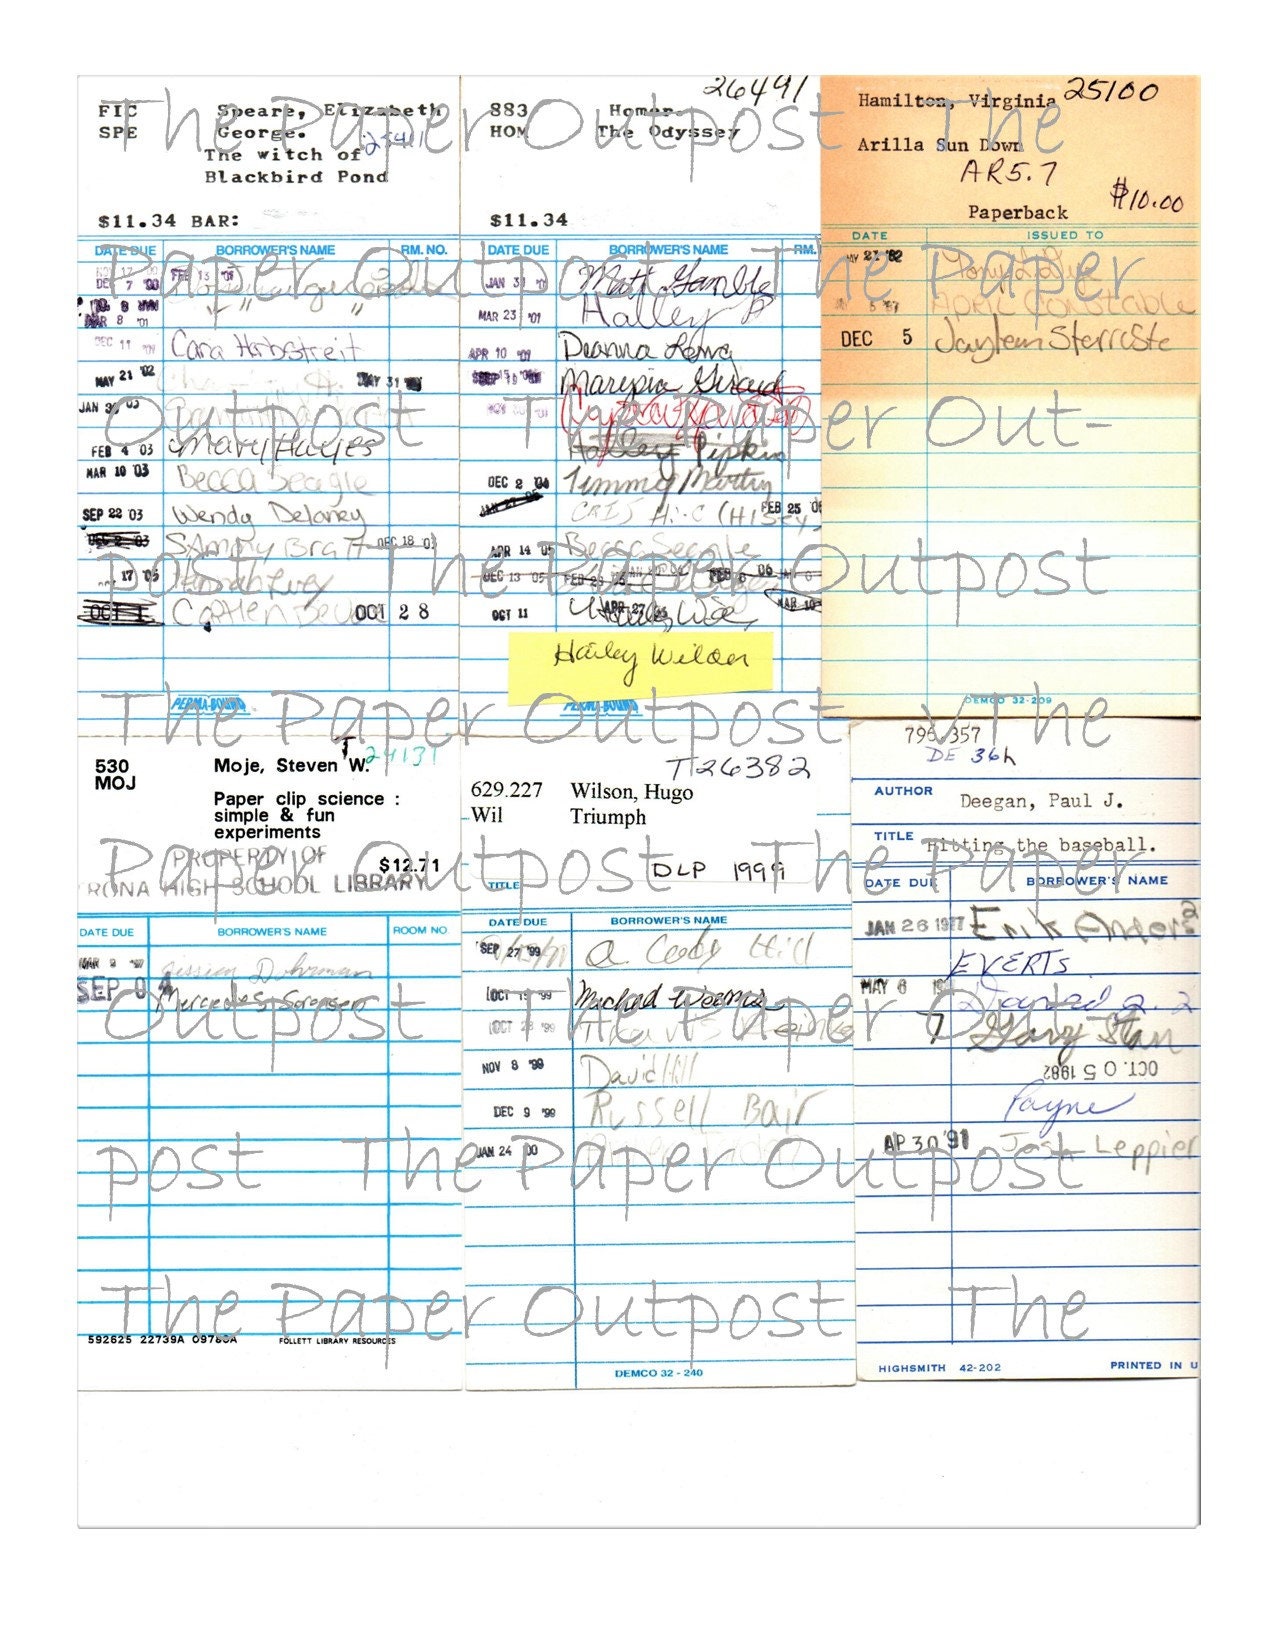 FIC Speare, Elizabeth
SPE George.
The witch of
Blackbird Pond
$11.34 BAR:
DATE DUE BORROWER'S NAME RM. NO.
DEC 7 00
MAR 8 '01
DEC 11 '01 Cara Harbstreit
MAY 21 '02 MAY 31
JAN 30 '03
FEB 4 03 Mary Hayes
MAR 10 '03 Becca Seagle
SEP 22 '03 Wendy Delaney
DEC 2 '03 Sammy Bratt DEC 18 '03
17 '05
OCT 1 OCT 28
PERMA-BOUND
26491
883 Homer.
HOM The Odyssey
$11.34
DATE DUE BORROWER'S NAME RM.
JAN 3 Matt Gamble
MAR 23 '01 Halley P
APR 10 '01 Deanna Lowe
SEP 19
Halley Pipkin
DEC 2 04 Timmy Martin
FEB 25
APR 14 '05 Becca Seagle
DEC 13 '05
OCT 11 APR 27 MAR 10
Hailey Wilder
PERMA-BOUND
Hamilton, Virginia 25100
Arilla Sun Down
AR5.7
$10.00
Paperback
DATE ISSUED TO
MAY 21 '82
April Constable
DEC 5
DEMCO 32-209
24131
530 Moje, Steven W.
MOJ
Paper clip science :
simple & fun
experiments
PROPERTY OF $12.71
RONA HIGH SCHOOL LIBRARY
DATE DUE BORROWER'S NAME ROOM NO.
SEP 0 Mercedes Sorensen
592625 22739A 09780A FOLLETT LIBRARY RESOURCES
T26382
629.227 Wilson, Hugo
Wil Triumph
DLP 1999
TITLE
DATE DUE BORROWER'S NAME
SEP 27 '99 Cody Hill
OCT 15 '99 Michael Weems
OCT 28 '99 Travis
NOV 8 '99 David Hill
DEC 9 '99 Russell Bair
JAN 24 00
DEMCO 32-240
796.357
DE 36h
AUTHOR Deegan, Paul J.
TITLE Hitting the baseball.
DATE DUE BORROWER'S NAME
JAN 26 1977 Erik Anders
EVERTS
MAY 6
Gary Stan
OCT. 0 5 1982
Payne
AP 30 '91 Josh Leppier
HIGHSMITH 42-202 PRINTED IN U
The Paper Outpost The
Paper Outpost The Paper
Outpost The Paper Out-
post The Paper Outpost
The Paper Outpost The
Paper Outpost The Paper
Outpost The Paper Out-
post The Paper Outpost
The Paper Outpost The